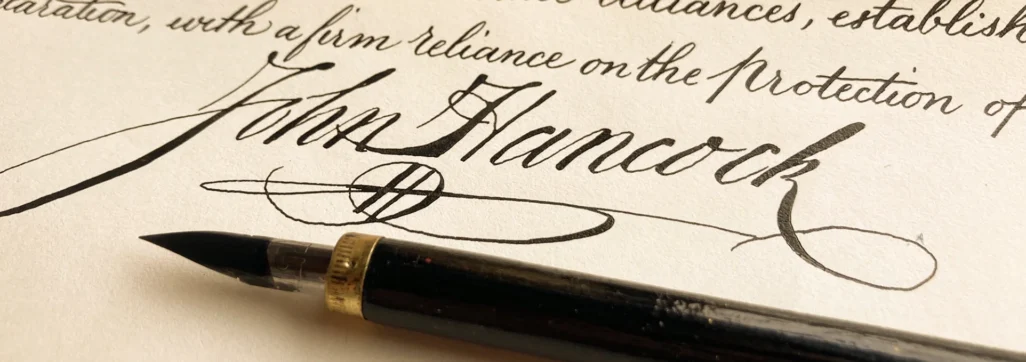 alliances, establish
laration, with a firm reliance on the protection of
John Hancock